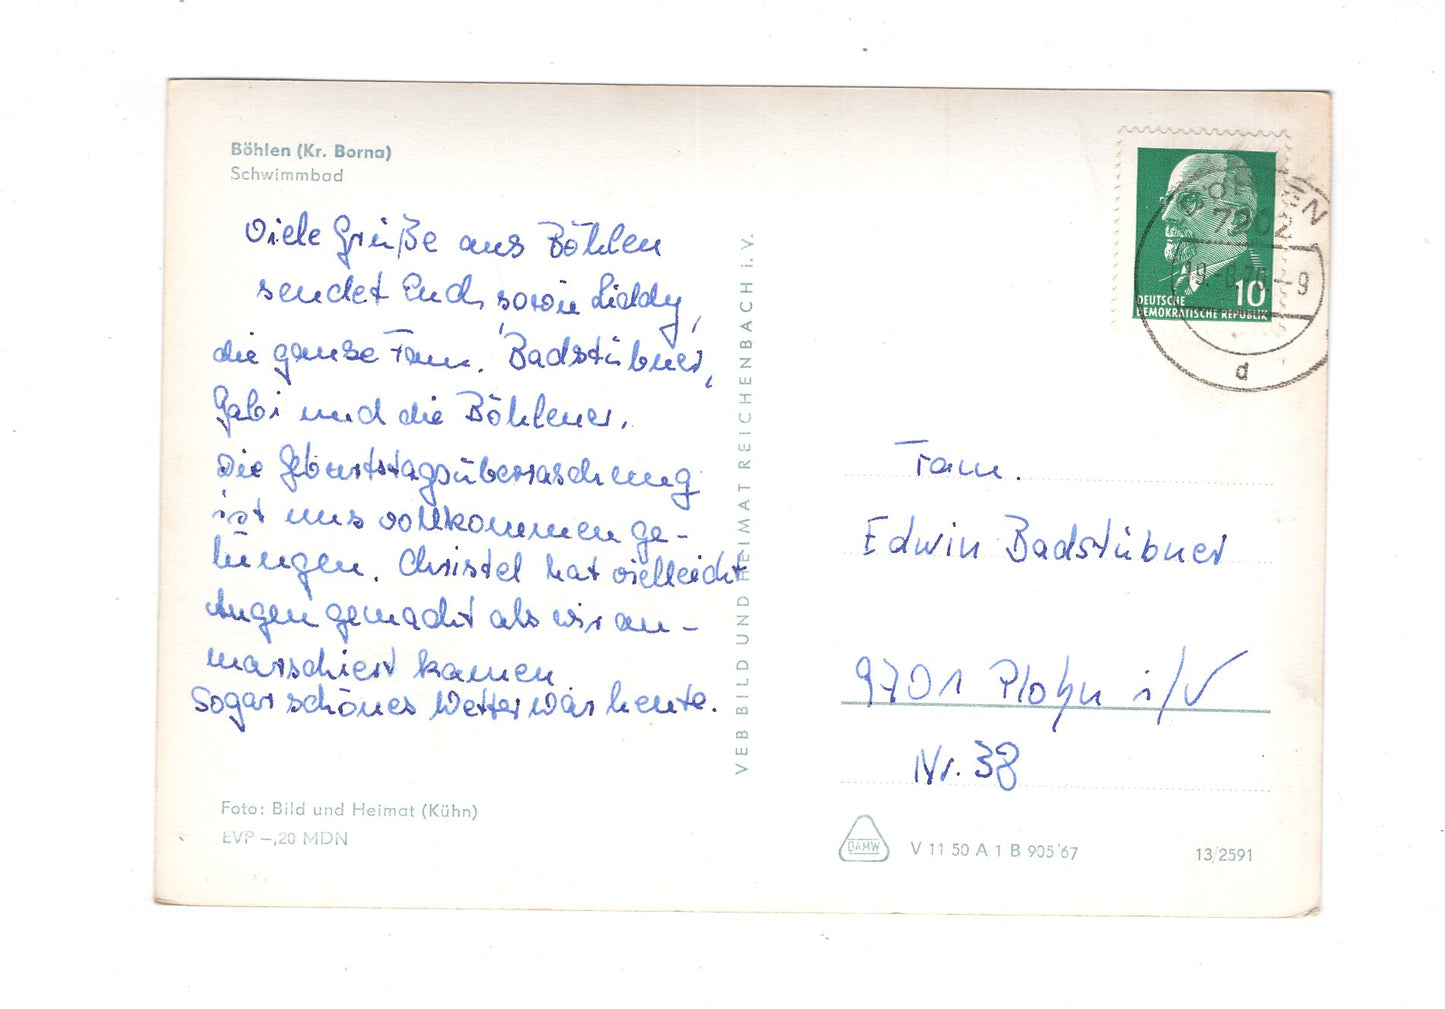 Böhlen (Kr. Borna)
Schwimmbad
Viele Grüße aus Böhlen
sendet Euch, sowie Liddy,
die ganze Fam. Badstübner,
Gabi und die Böhlener.
Die Geburtstagsüberraschung
ist uns vollkommen ge-
lungen. Christel hat vielleicht
Augen gemacht als wir an-
marschiert kamen
Sogar schönes Wetter war heute.
Foto: Bild und Heimat (Kühn)
EVP –,20 MDN
VEB BILD UND HEIMAT REICHENBACH i. V.
DEUTSCHE
DEMOKRATISCHE REPUBLIK
10
BÖHLEN
7202
19.-8.70-9
d
Fam.
Edwin Badstübner
9701 Plohn i/V
Nr. 38
DAMW
V 11 50 A 1 B 905 '67
13/2591